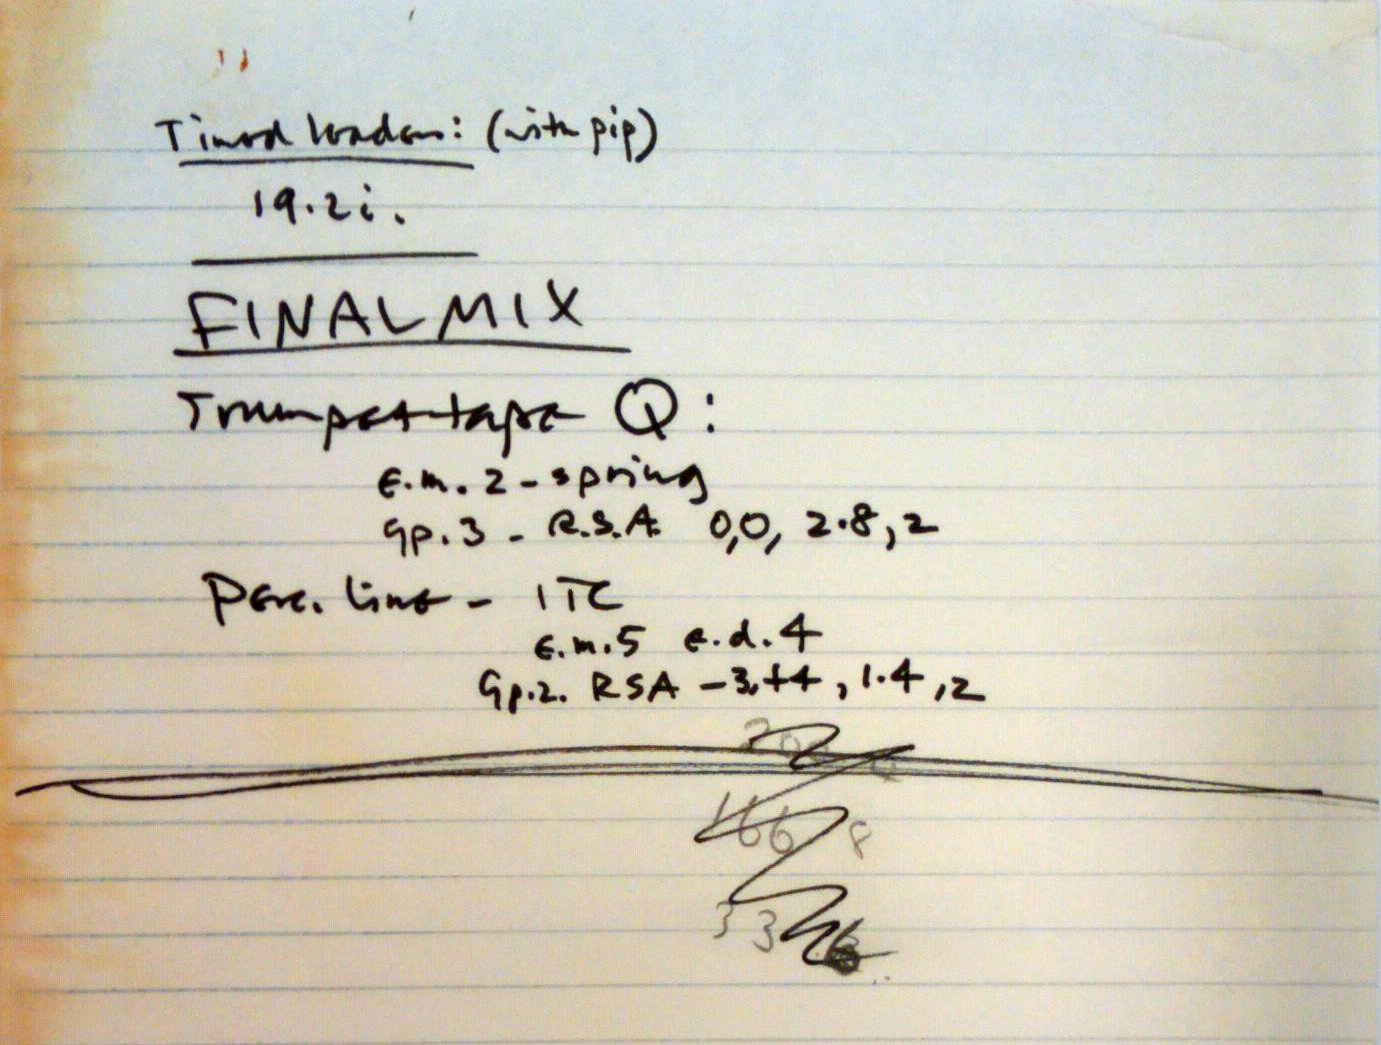 Timed leaders: (with pip)
19.2i.
FINAL MIX
Trumpet tape Q:
e.m. 2 - spring
Gp. 3 - R.S.A. 0,0, 2.8, 2
Perc. line - ITC
e.m.5 e.d.4
Gp.2. RSA -3,+4, 1.4, 2
166 8
33